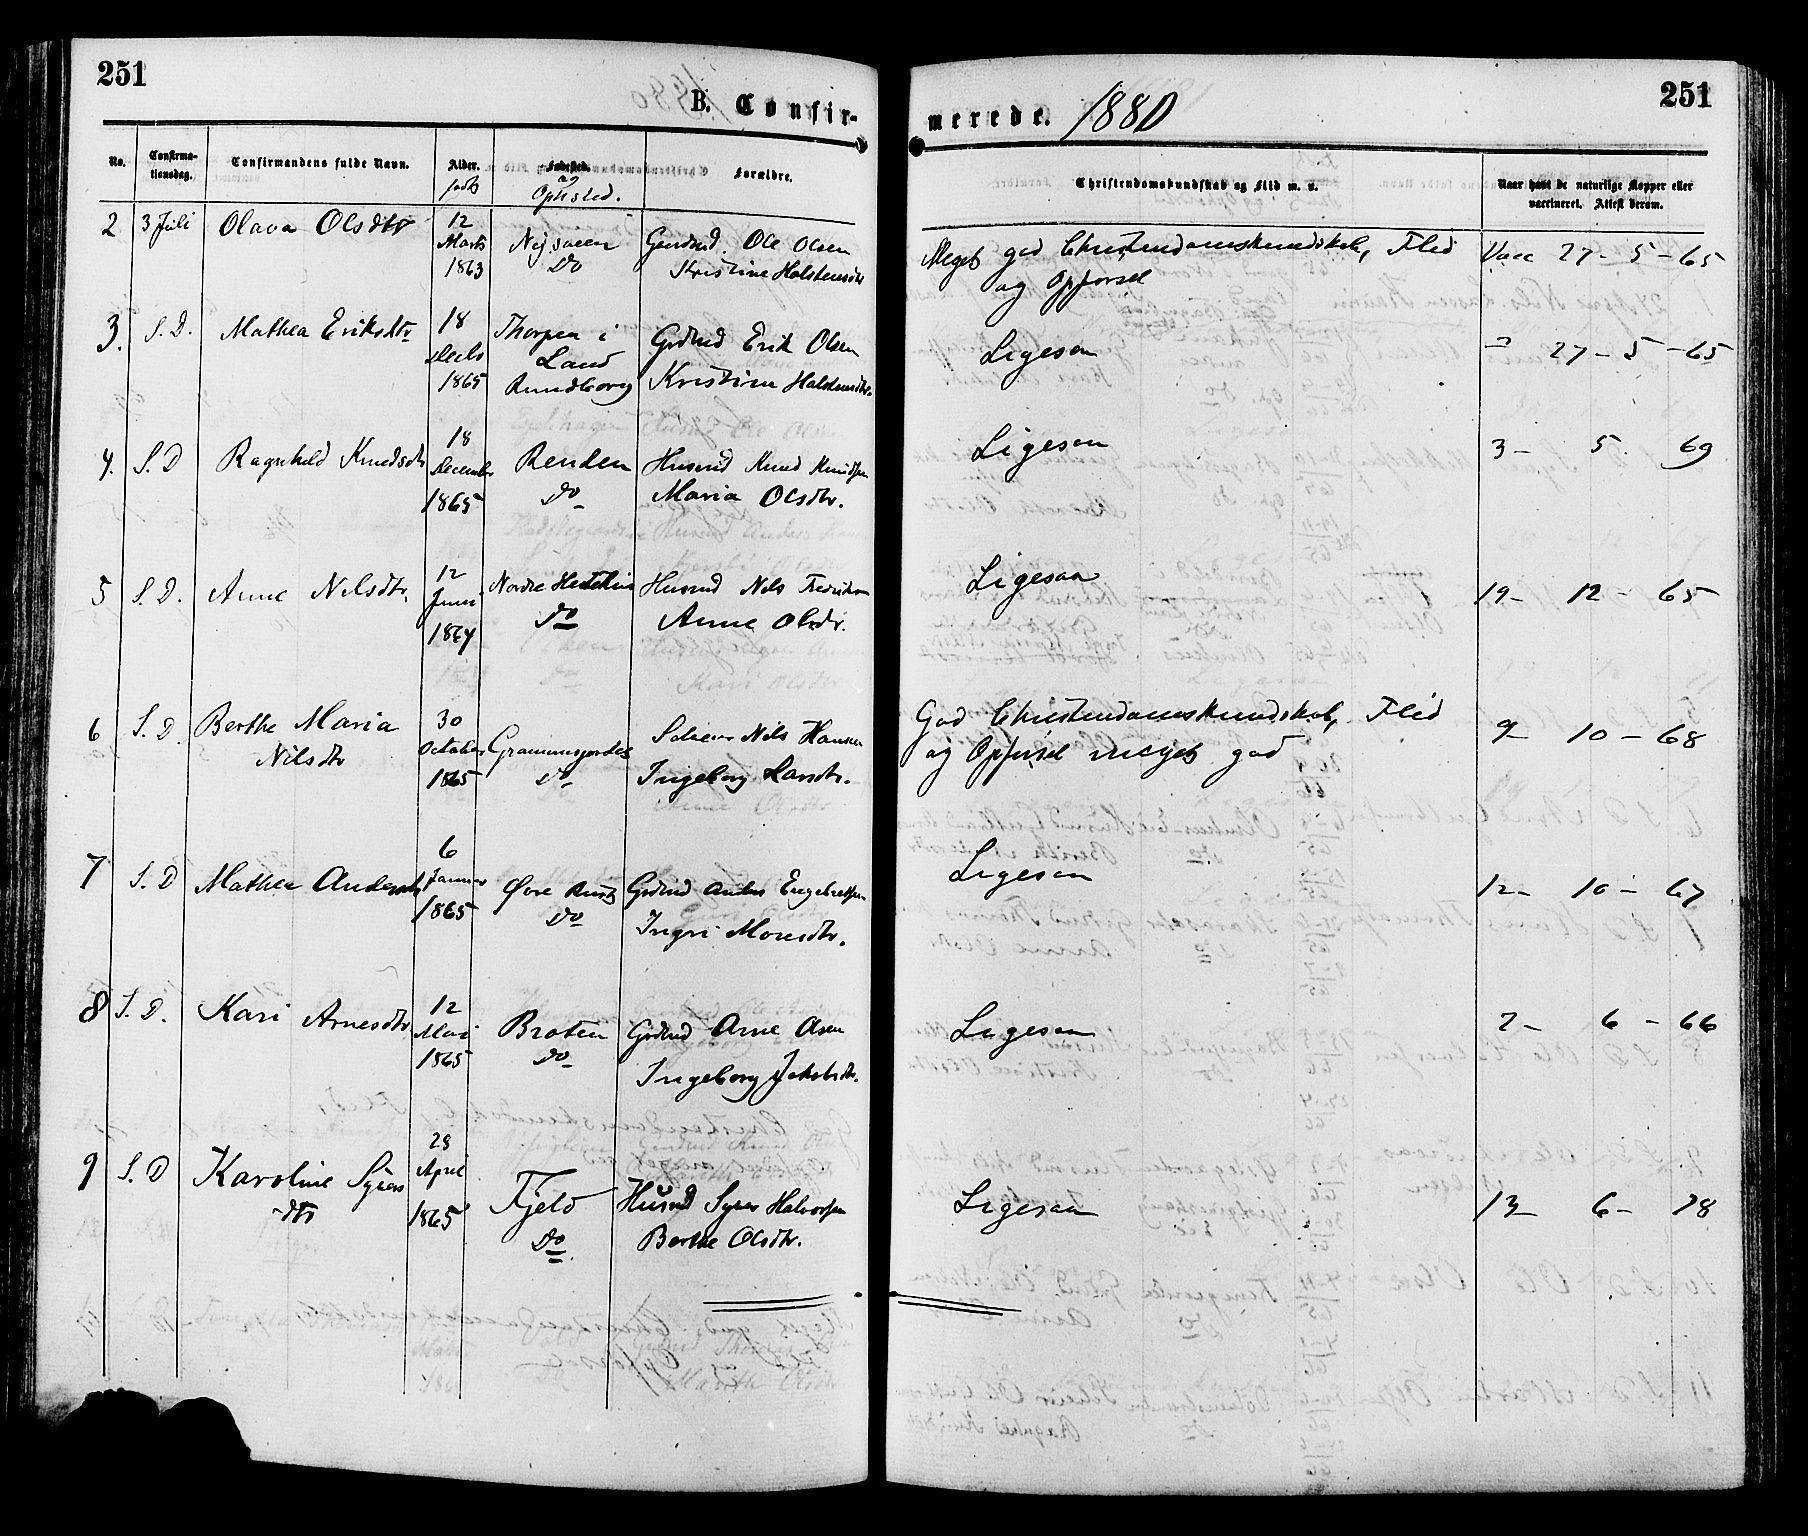 251
B. Confir-
No.
Confirma-
tionsdag.
Confirmandens fulde Navn.
Alder.
født
Fødested.
og
Opholdsted.
Forældre.
2
3 Juli
Olava Olsdtr
12
Marts
1863
Do
Gaardmd. Ole Olsen
Kristine Halstensdtr
3.
S. D.
Mathea Eriksdtr
18
Decbr
1865
Thorpen i
Land
Rundborg
Grdmd Erik Olsen
Kristine Halstensdtr.
4.
S. D
Ragnhild Knudsdtr
18
December
1865
Renden
Do
Husmd Knud Knudsen
Maria Olsdtr.
5
S. D.
Anne Nilsdtr.
12
Juni
1864
Nordre
Do
Husmd Nils Fredriksen
Anne Olsdtr.
6
S. D.
Berthe Maria
Nilsdtr
30
October
1865
Do
Nils Hansen
Ingeborg Larsdtr.
7
S. D
Mathea Andersdtr
6
Januar
1865
Øvre Rust
Do
Grdmd Anders Engebretsen
Ingri Monsdtr.
8
S. D.
Kari Arnesdtr
12
Mai
1865
Braten
Do
Grdmd Arne Olsen
Ingeborg Jakobsdtr.
9
S. D
Karoline Syvers
dtr
28
April
1865
Fjeld
Do
Husmd Syver Halvorsen
Berthe Olsdtr.
251
merede. 1880
Christendomskundskab og Flid m. v.
Naar havt de naturlige Kopper eller
vaccineret. Attest derom.
Meget god Christendomskundskab, Flid
og Opførsel
Vacc 27 - 5 - 65
Ligesaa
" 27 - 5 - 65
Ligesaa
3 - 5. 69
Ligesaa
19 - 12 - 65
God Christendomskundskab, Flid
og Opførsel meget god
9 - 10 - 68
Ligesaa
12 - 10 - 67
Ligesaa
2 - 6 - 66
Ligesaa
13 - 6 - 78